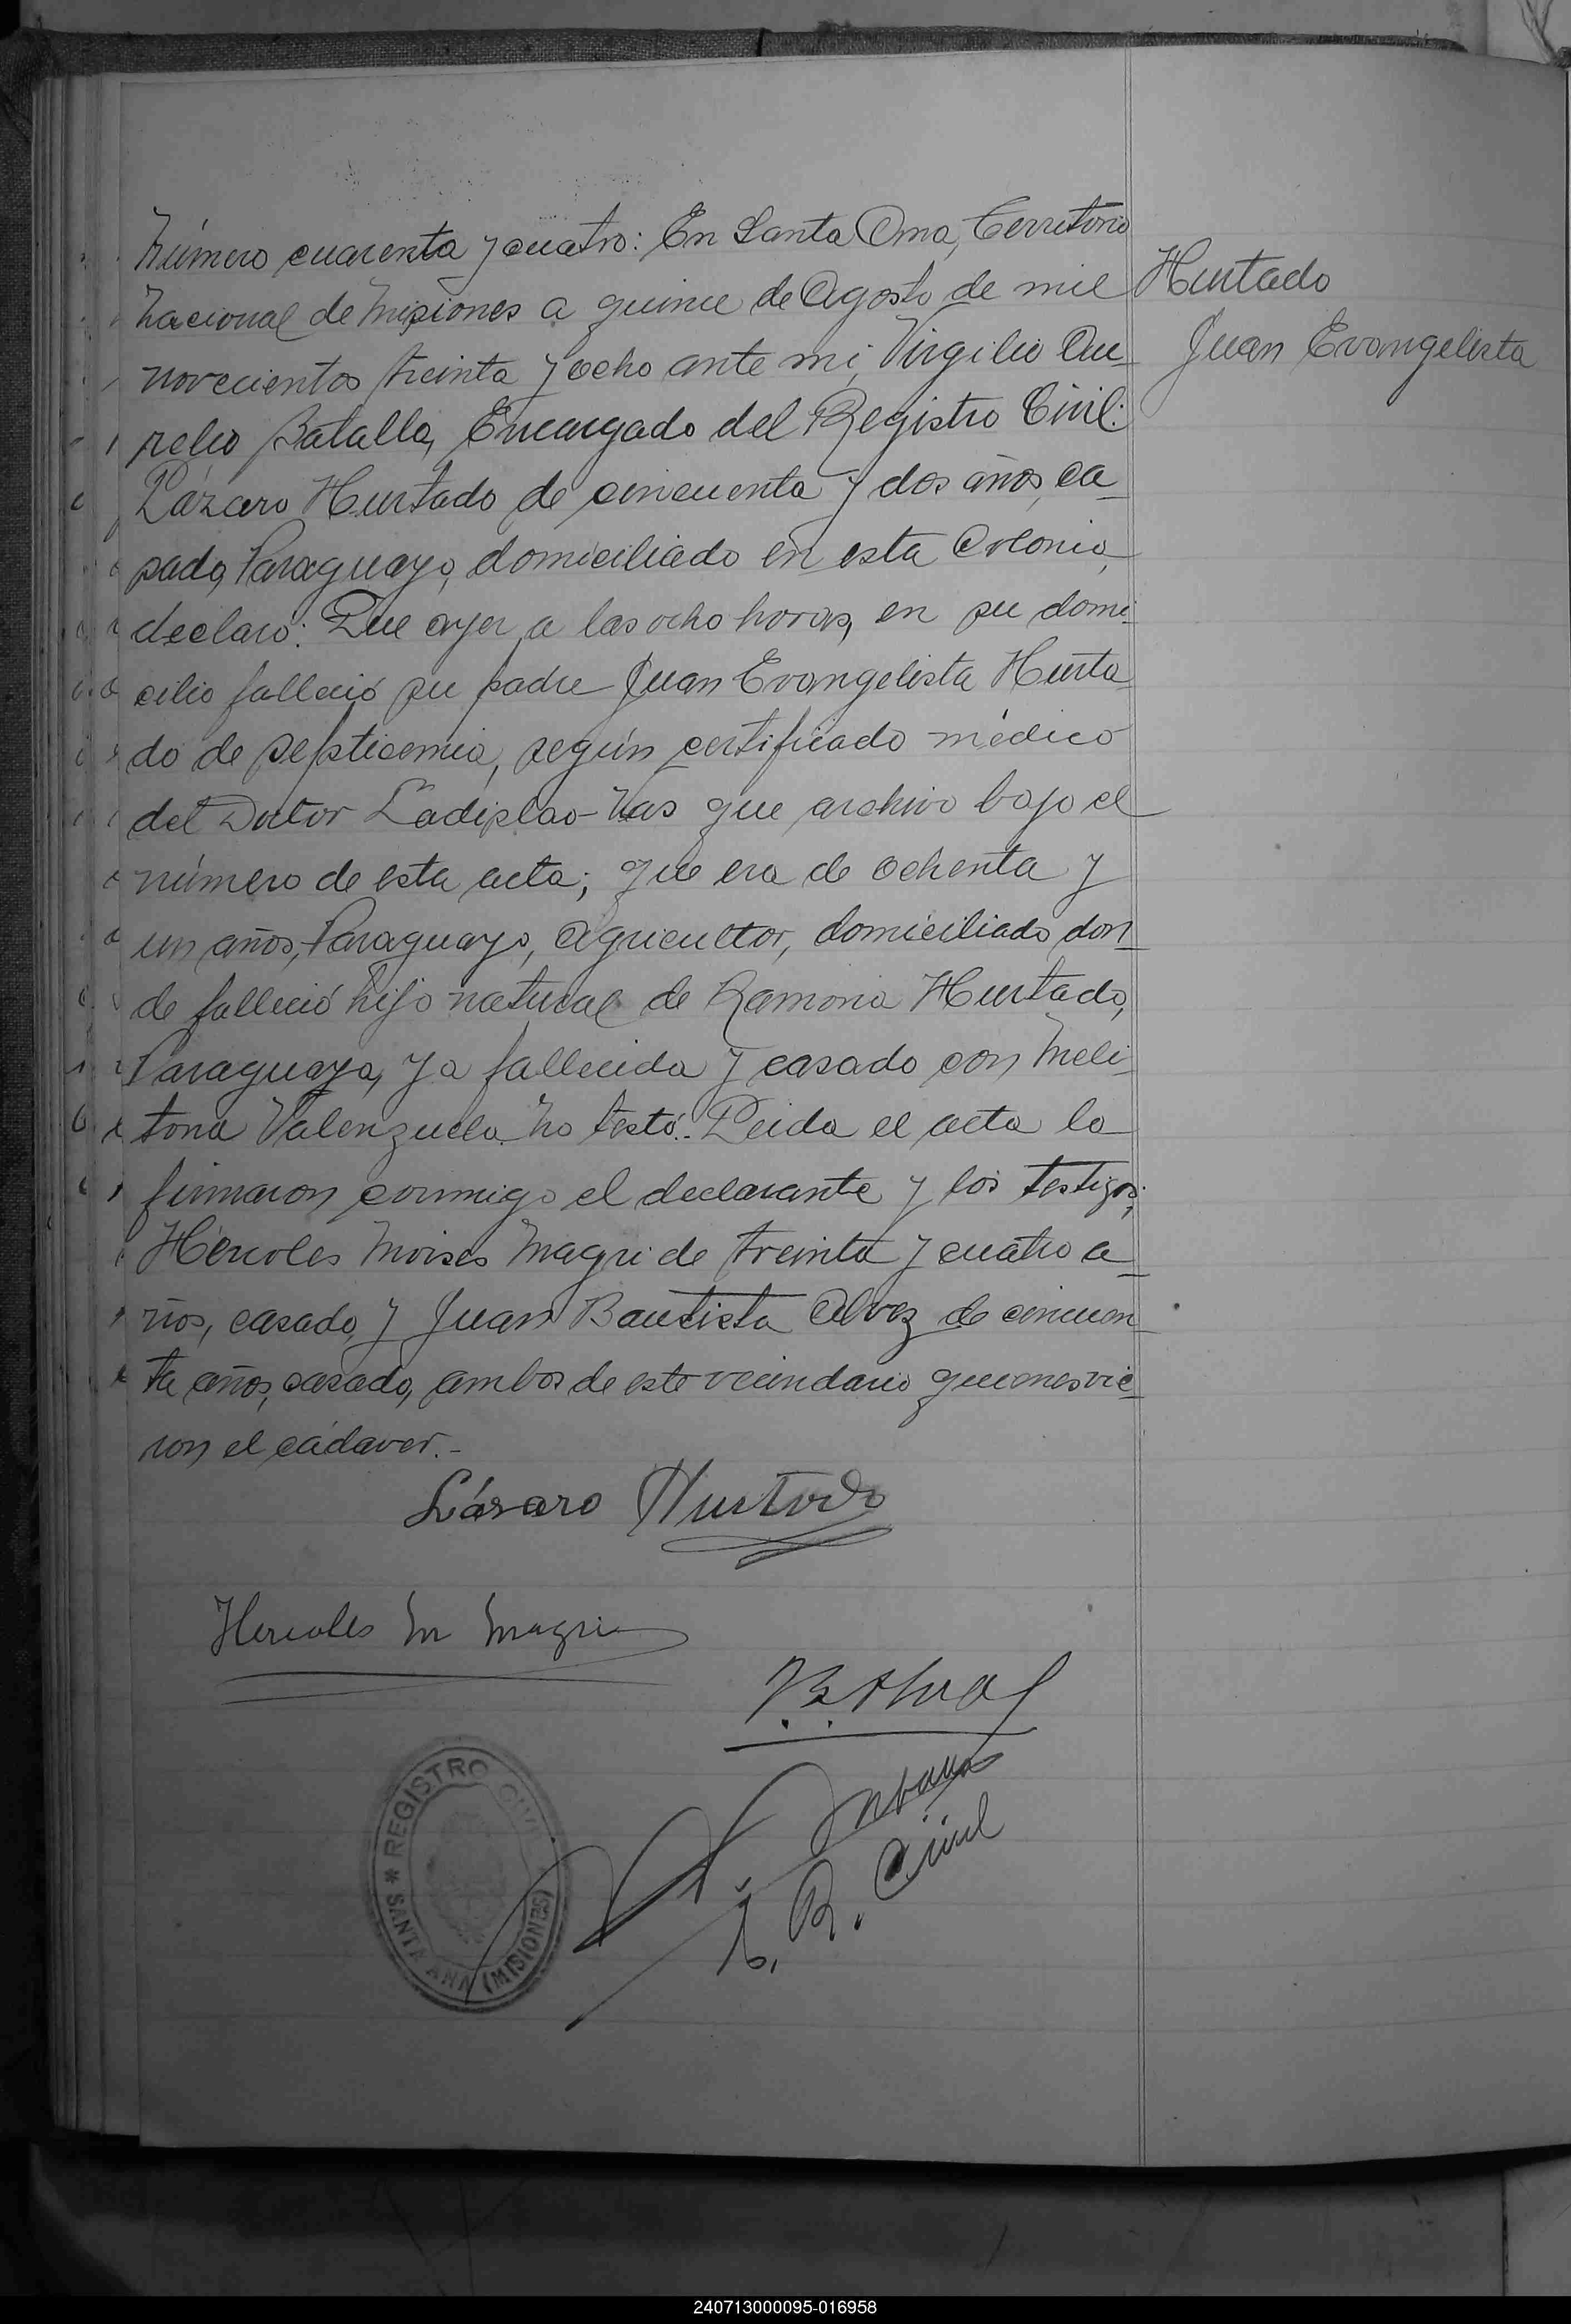 Número cuarenta y cuatro: En Santa Ana, Territorio
Nacional de Misiones a quince de Agosto de mil
novecientos treinta y ocho ante mi, Virgilio Au-
relio Batalla, Encargado del Registro Civil:
Lázaro Hurtado de cincuenta y dos años, ca-
sado, Paraguayo, domiciliado en esta Colonia,
declaró: Que ayer a las ocho horas, en su domi-
cilio falleció su padre Juan Evangelista Hurta-
do de septicemia, según certificado médico
del Doctor Ladislao que archivo bajo el
número de esta acta; que era de ochenta y
un años, Paraguayo, agricultor, domiciliado don-
de falleció hijo natural de Ramona Hurtado,
Paraguaya, ya fallecida y casado con Meli-
tona Valenzuela. No testó.- Leida el acta la
firmaron conmigo el declarante y los testigos:
Hércoles Moises Magri de treinta y cuatro a-
ños, casado, y Juan Bautista Alvez de cincuen-
ta años, casado, ambos de este vecindario quienes vie-
ron el cádaver.-
Hurtado
Juan Evangelista
Lázaro Hurtado
Hercoles M Magri
E. R. Civil
REGISTRO CIVIL
* SANTA ANA (MISIONES)
240713000095-016958